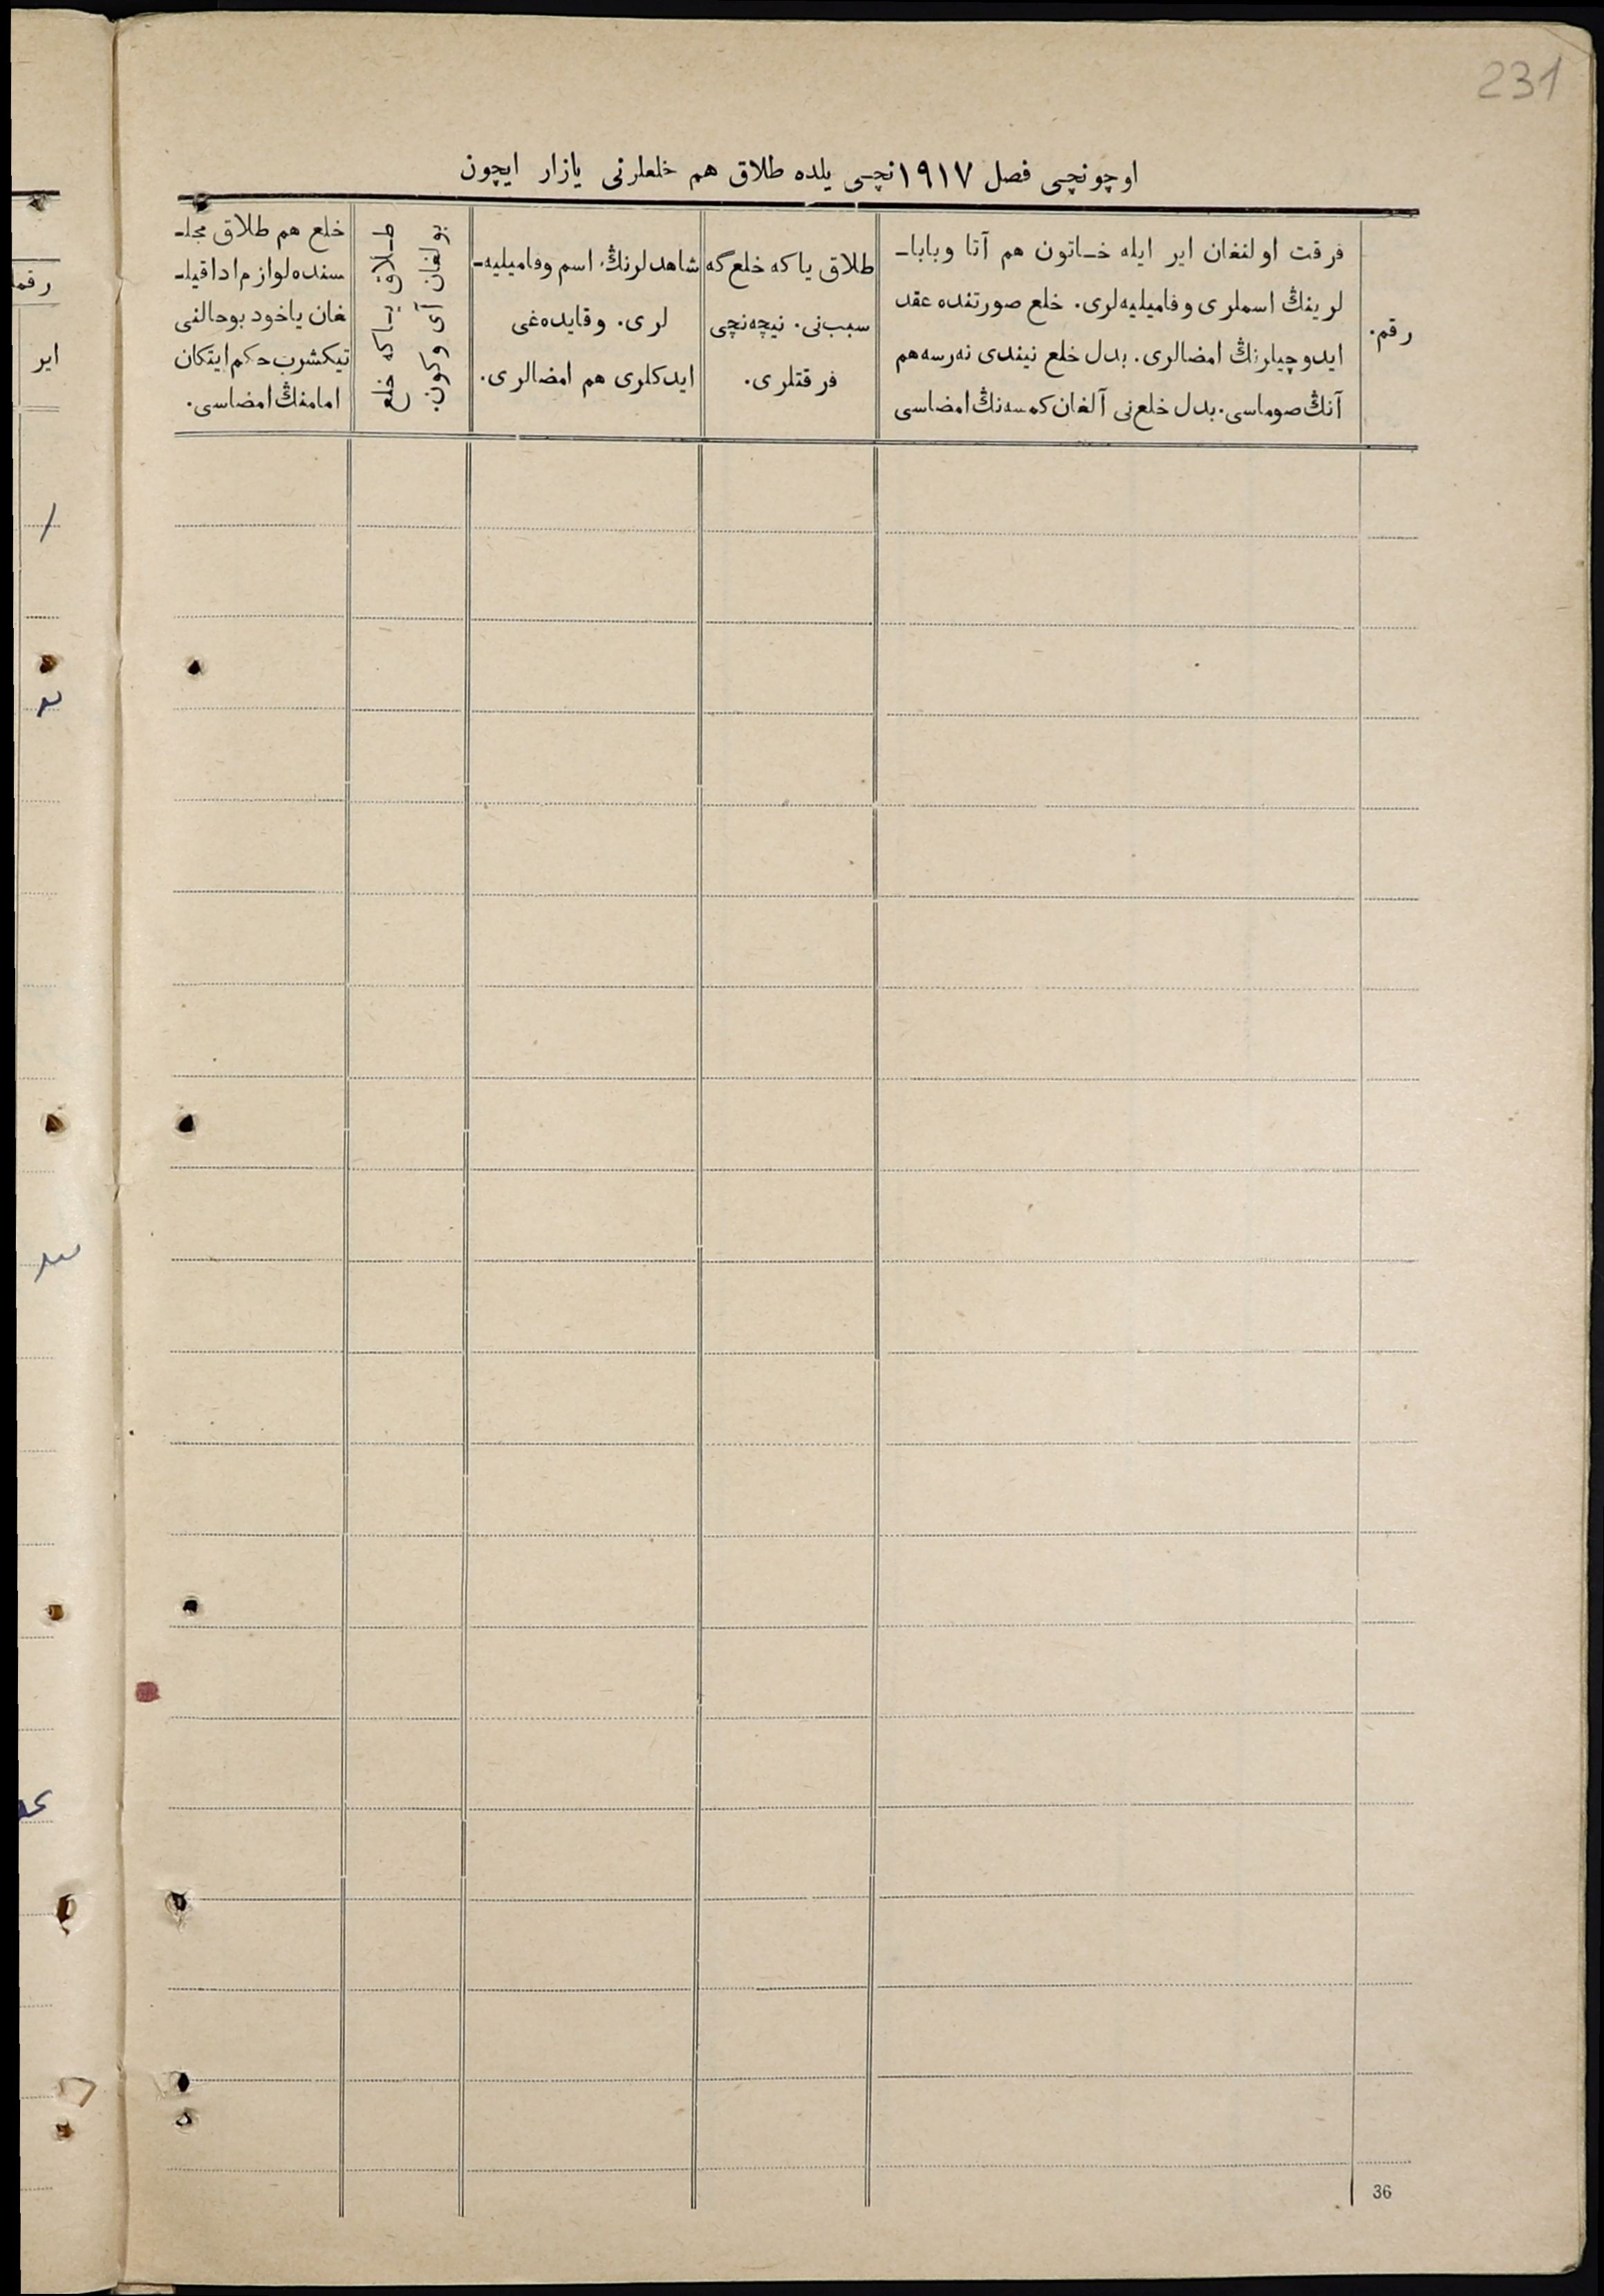 231
اوچونچی فصل ١٩١٧نچی یلده طلاق هم خلعلرنی یازار ایچون
رقم.
فرقت اولنغان ایر ایله خـاتون هم آتا وبابا-
لرینڭ اسملری وفامیلیه‌لری. خلع صورتنده عقد
ایدوچیلرنڭ امضالری. بدل خلع نیندی نه‌رسه هم
آنڭ صوماسی. بدل خلع‌نی آلغان کمسه‌نڭ امضاسی
طلاق یاکه خلع گه
سبب‌نی. نیچه‌نچی
فرقتلری.
شاهدلرنڭ اسم وفامیلیه-
لری. وقایده‌غی
ایدکلری هم امضالری.
طـلاق یـاکه خلع
بولغان آی وکون.
خلع هم طلاق مجلـ-
سنده لوازم ادا قیلـ-
غان یاخود بوحالنی
تیکشرب حکم ایتکان
امامنڭ امضاسی.
36
ایر